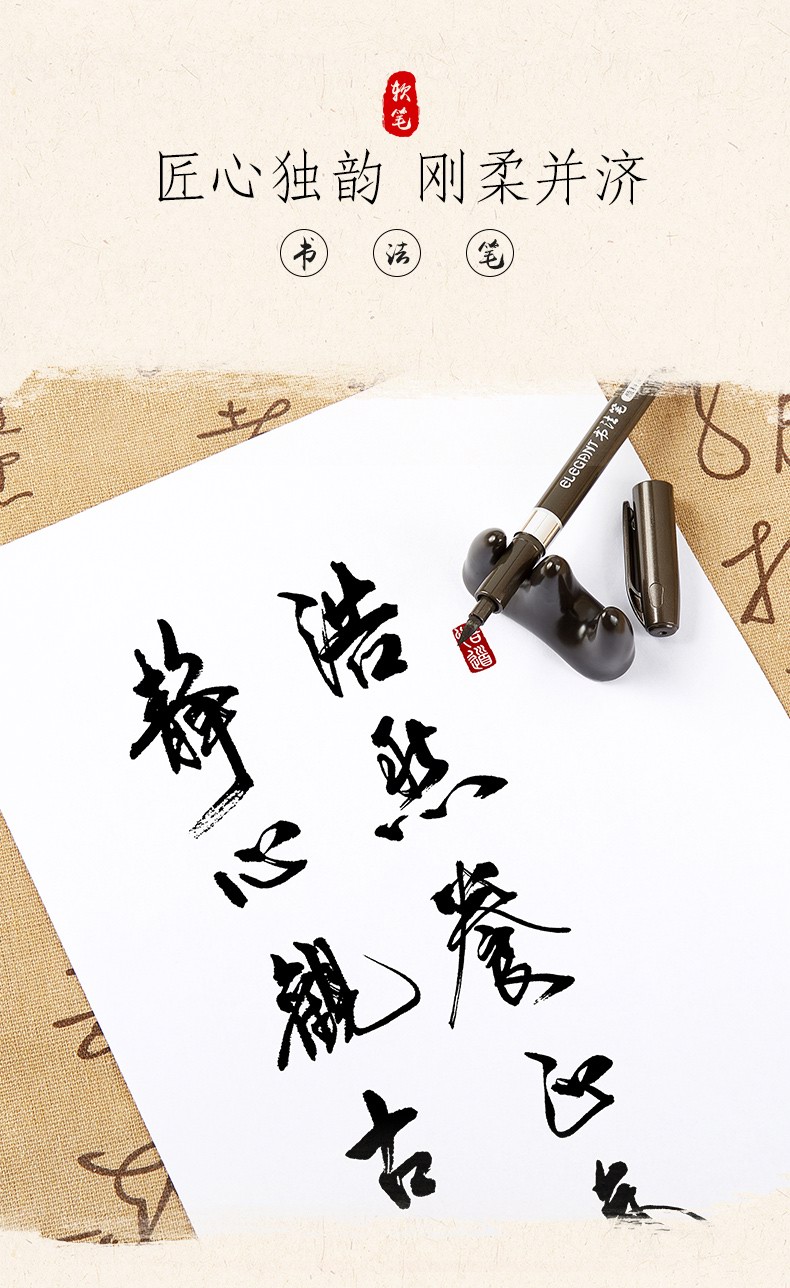 软笔
匠心独韵 刚柔并济
书法笔
ELEGANT 书法笔
浩然養正
静心觀古